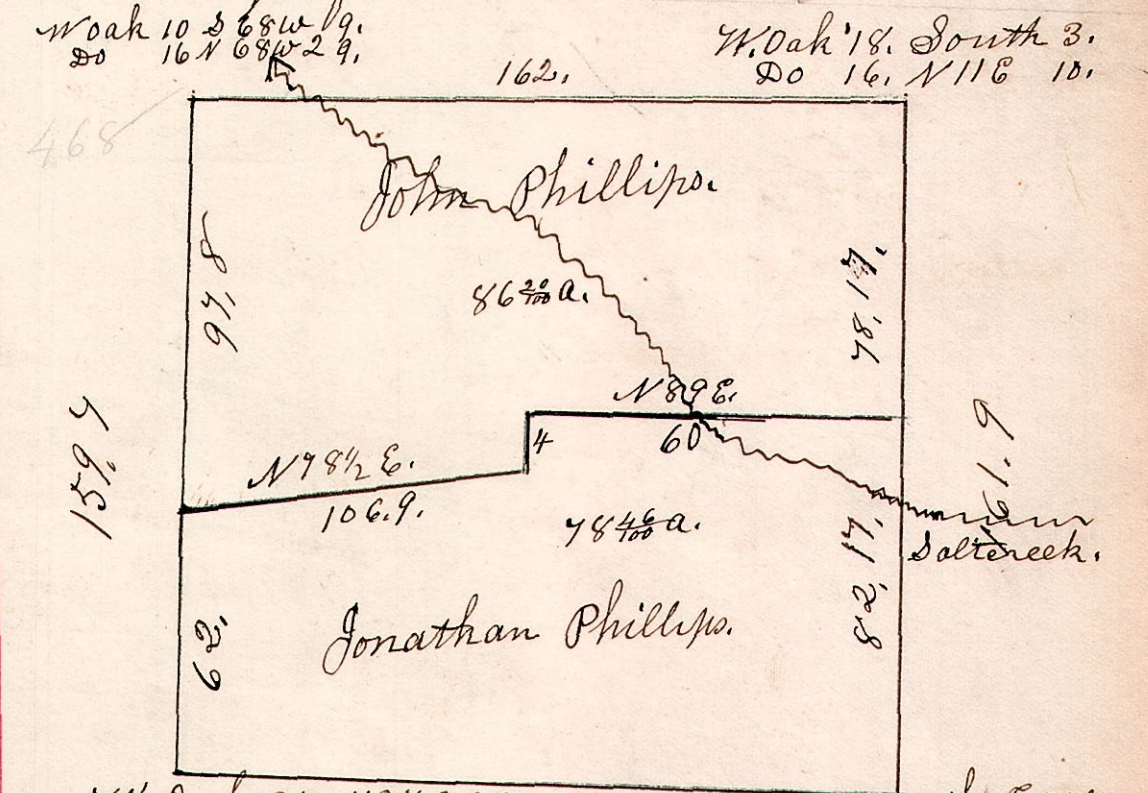 W oak 10 S 68 W 9.
Do 16 N 68 W 29.
W. Oak 18. South 3.
Do 16. N 11 E 10.
162.
468
John Phillips.
97,8
86 20/100 a.
78,17,
N 89 E.
4
60
159,7
N 78 1/2 E.
106.9.
61,9
78 46/100 a.
82,17,
Saltcreek.
62,
Jonathan Phillips.